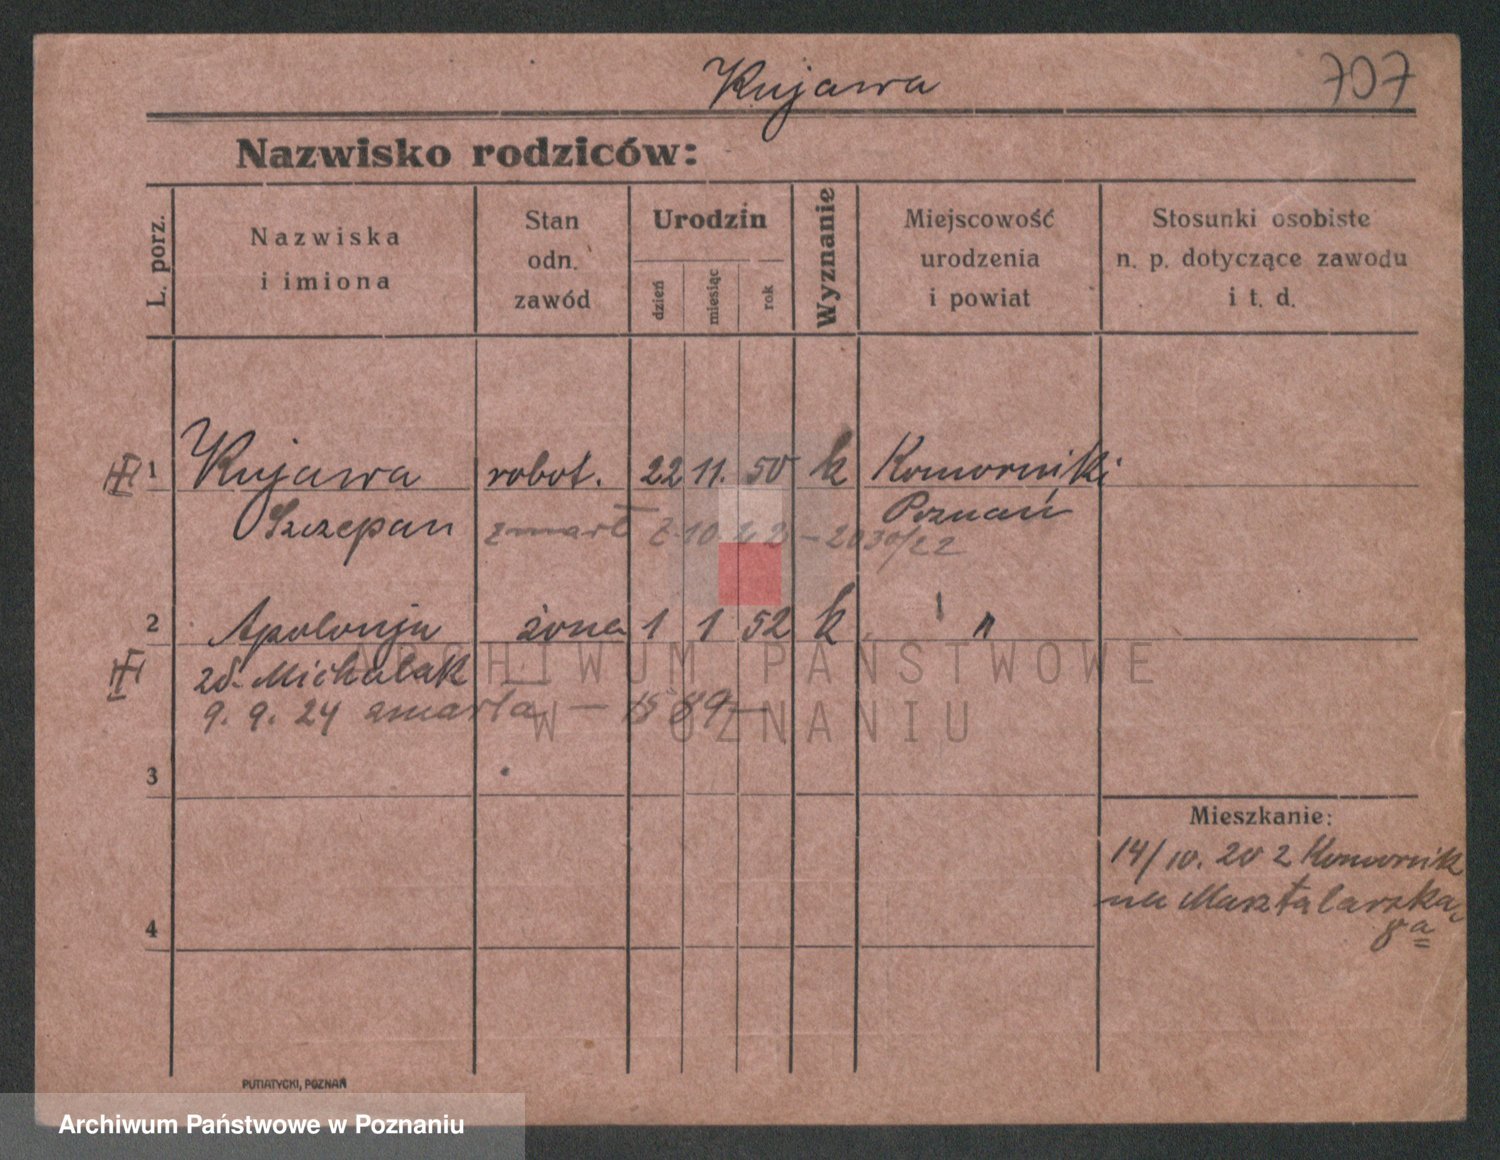 Kujawa
707
Nazwisko rodziców:
L. porz.
Nazwiska
i imiona
Stan
odn.
zawód
Urodzin
dzień
miesiąc
rok
Wyznanie
Miejscowość
urodzenia
i powiat
Stosunki osobiste
n. p. dotyczące zawodu
i t. d.
1 Kujawa robot. 22 11. 50 k Komorniki
Szczepan Poznań
zmarł 2.10.22
2 Apolonja żona 1 1 52 k "
zd. Michalak
9. 9. 24 zmarła
3
4
Mieszkanie:
14/10. 20 z Komornik
na Masztalarska
8a
PUTIATYCKI, POZNAŃ
ARCHIWUM PAŃSTWOWE
W POZNANIU
Archiwum Państwowe w Poznaniu